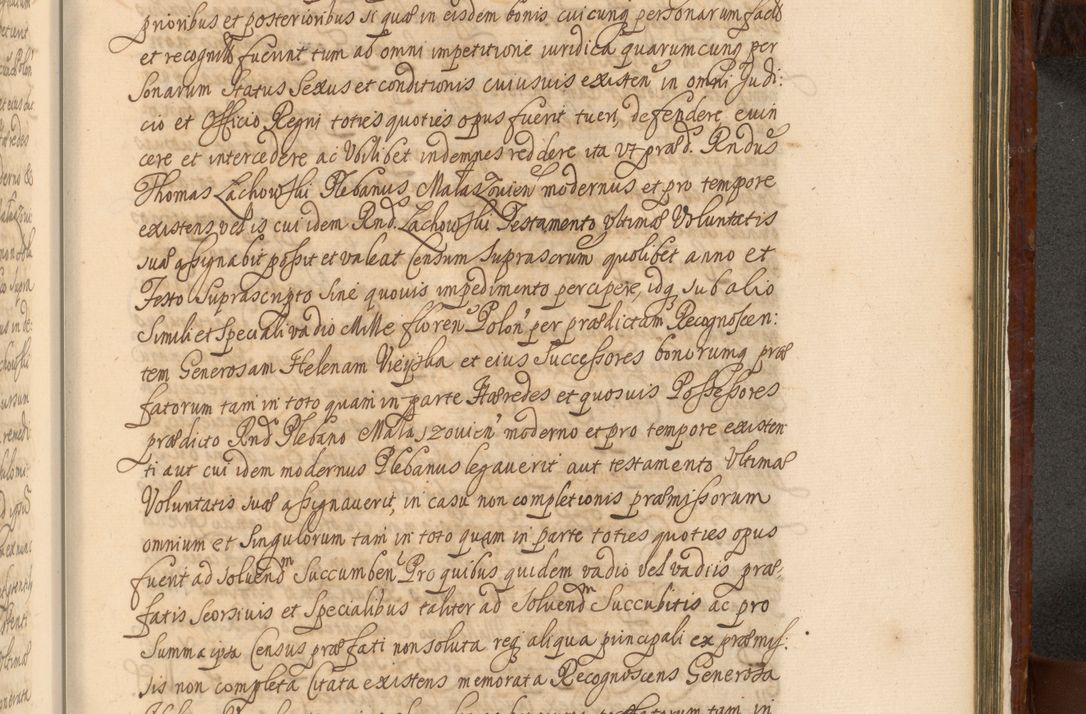 prioribus et posterioribus si quæ in eisdem bonis cuicunq personarum factæ
et recognitæ fuerint tum ab omni impetitione iuridica quarumcunq per
sonarum Status Sexus et conditionis cuiusuis existen in omni Judi:
cio et Officio Regni toties quoties opus fuerit tueri, defendere euin
cere et intercedere ac Vbilibet indemnes reddere ita vt præd. Rndus
Thomas Zachowski Plebanus Malaszouien modernus et pro tempore
existens vel is cui idem Rnds Zachowski Testamento vltimæ Voluntatis
suæ assignabit possit et valeat Censum Suprascrum quolibet anno et
Festo Suprascripto sine quouis impedimento percipere, idq sub alio
Simili et Speciali vadio Mille floren Polon per prædictam Recognoscen:
tem Generosam Helenam Vieyska et eius Successores bonorumq præ
fatorum tam in toto quam in parte Hæredes et quosuis Possessores
prædicto Rnd Plebano Malaszouien moderno et pro tempore existen
ti aut cui idem modernus Plebanus legauerit aut testamento Vltimæ
Voluntatis suæ assignauerit, in casu non completionis præmissorum
omnium et Singulorum tam in toto quam in parte toties quoties opus
fuerit ad soluendm Succumben Pro quibus quidem vadio vel vadiis præ,
fatis Seorsiuis et Specialibus taliter ad Soluendm Succubitis ac pro
Summa ipsa Census præfati non soluta req aliqua principali ex præmis:
sis non completa Citata existens memorata Recognoscens Generosa